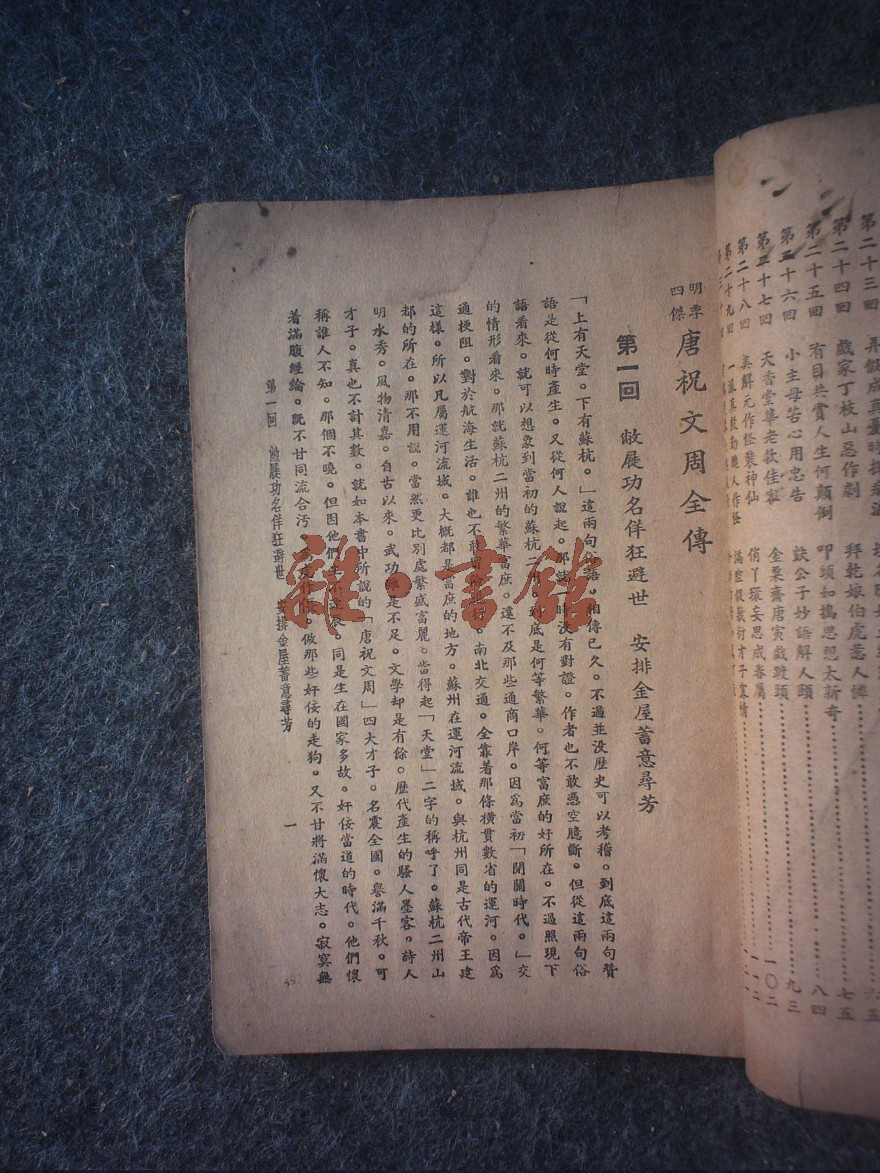 第二十三回 弄假成真
第二十四回 戲家丁枝山惡作劇 拜乾娘伯虎惹人憐 七五
第二十五回 有目共賞人生何顛倒 叩頭如搗思想太新奇 八四
第二十六回 小主母苦心用忠告 談公子妙語解人頤 九三
第二十七回 天香堂華老款佳客 金粟齋唐寅戲跛頭 一〇二
第二十八回 美解元作怪裝神仙 俏丫鬟妄思成眷屬
第二十九回
明季四傑 唐祝文周全傳
第一回 敝屣功名佯狂避世 安排金屋蓄意尋芳
「上有天堂。下有蘇杭。」這兩句俗語。相傳已久。不過並没歷史可以考稽。到底這兩句贊
語是從何時產生。又從何人說起。那就一時没有對證。作者也不敢憑空臆斷。但從這兩句俗
語看來。就可以想象到當初的蘇杭二州。到底是何等繁華。何等富庶的好所在。不過照現下
的情形看來。那就蘇杭二州的繁華富庶。遠不及那些通商口岸。因爲當初「閉關時代。」交
通梗阻。對於航海生活。誰也不敢行。南北交通。全靠着那條橫貫數省的運河。因爲
這樣。所以凡屬運河流域。大概都是富庶的地方。蘇州在運河流域。與杭州同是古代帝王建
都的所在。那不用說。當然更比別處繁盛富麗。當得起「天堂」二字的稱呼了。蘇杭二州山
明水秀。風物清嘉。自古以來。武功雖是不足。文學却是有餘。歷代產生的騷人墨客。詩人
才子。真也不計其數。就如本書中所說的「唐祝文周」四大才子。名震全國。譽滿千秋。可
稱誰人不知。那個不曉。但因他們生不逢辰。同是生在國家多故。奸佞當道的時代。他們懷
着滿腹經綸。既不甘同流合污。做那些奸佞的走狗。又不甘將滿懷大志。寂寞無
第一回 敝屣功名佯狂避世 安排金屋蓄意尋芳
一
雜·書館